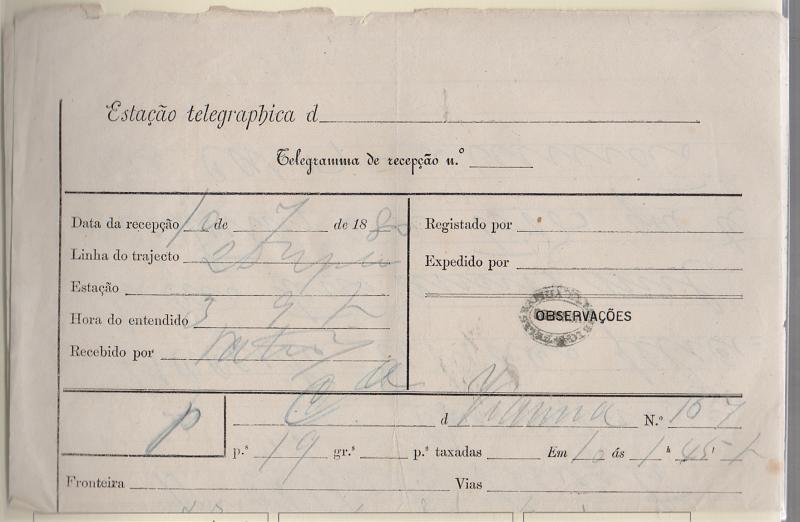 Estação telegraphica d
Telegramma de recepção n.º
Data da recepção 10 de 7 de 188
Linha do trajecto
Estação
Hora do entendido 3 9
Recebido por
Registado por
Expedido por
OBSERVAÇÕES
P C d Vianna N.º 157
p.ª 19 gr.ª p.ª taxadas Em 10 ás 1 h 45'
Fronteira Vias